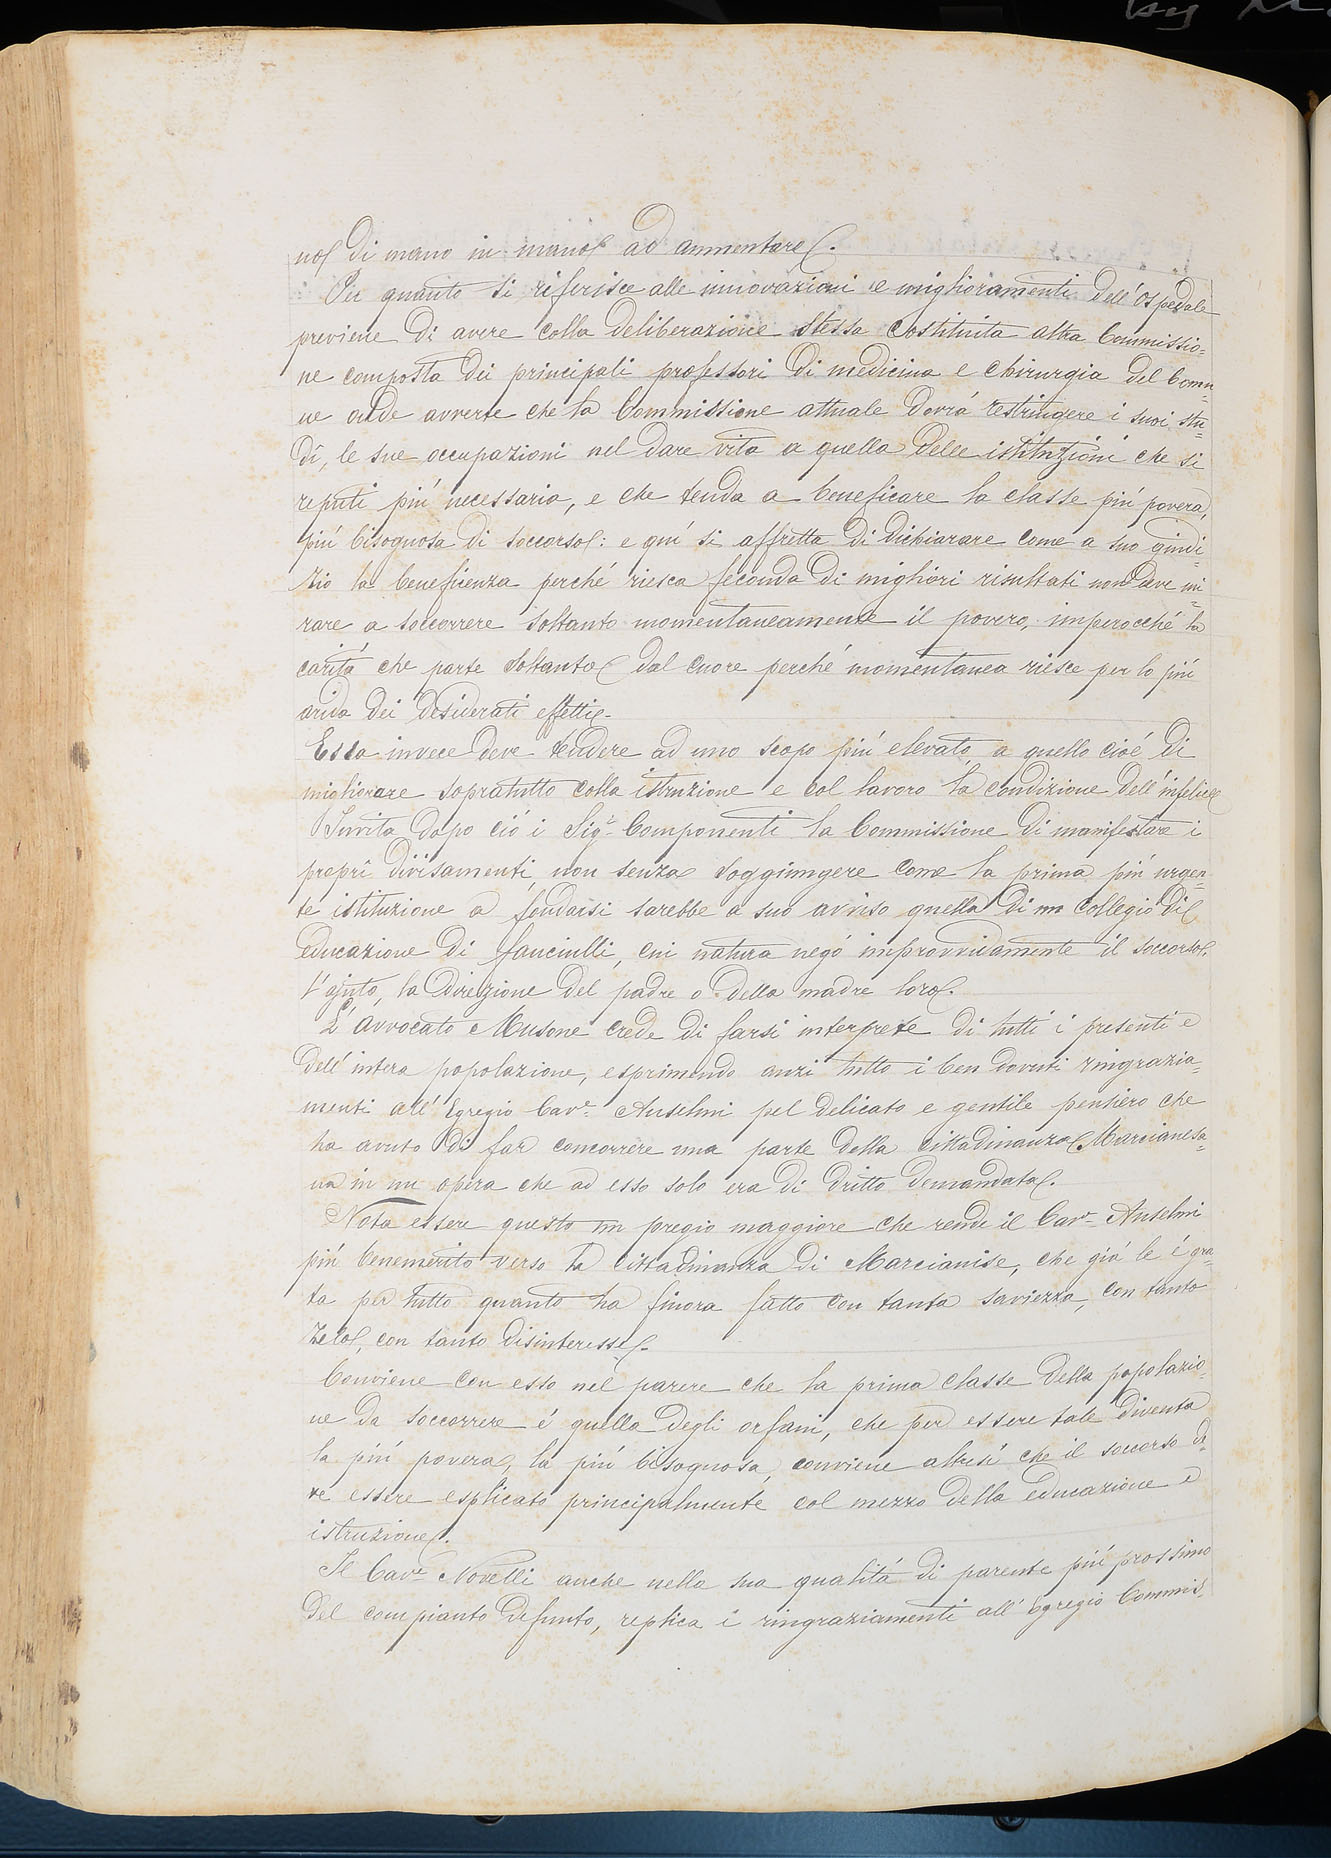 no di mano in mano ad aumentare.
Per quanto si riferisce alle innovazioni e miglioramenti dell'Ospedale
previene di avere colla deliberazione stessa costituita altra Commissio=
ne composta dei principali professori di medicina e chirurgia del Comu=
ne onde avverte che la Commissione attuale dovrá restringere i suoi stu=
dî, le sue occupazioni nel dare vita a quella delle istituzioni che si
reputi piú necessaria, e che tenda a beneficare la classe piú povera,
piú bisognosa di soccorso: e quí si affretta di dichiarare come a suo giudi=
zio la beneficenza perché riesca feconda di migliori risultati non deve mi=
rare a soccorrere soltanto momentaneamente il povero, imperocché la
caritá che parte soltanto dal cuore perché momentanea riesce per lo piú
arida dei desiderati effetti.
Essa invece deve tendere ad uno scopo piú elevato a quello cioé di
migliorare sopratutto colla istruzione e col lavoro la condizione dell'infelice
Invita dopo ció i Sigi. Componenti la Commissione di manifestare i
proprî divisamenti non senza soggiungere come la prima piú urgen=
te istituzione a fondarsi sarebbe a suo avviso quella di un Collegio di
educazione di fanciulli, cui natura negó improvvidamente il soccorso,
l'ajuto, la direzione del padre o della madre loro.
L'avvocato Musone crede di farsi interprete di tutti i presenti e
dell'intera popolazione, esprimendo anzi tutto i ben dovuti ringrazia=
menti all'Egregio Cave. Anselmi pel delicato e gentile pensiero che
ha avuto di far concorrere una parte della cittadinanza Marcianesa=
na in un opera che ad esso solo era di dritto demandata.
Nota essere questo un pregio maggiore che rende il Cav. Anselmi
piú benemerito verso la cittadinanza di Marcianise, che giá le é gra=
ta per tutto quanto ha finora fatto con tanta saviezza, con tanto
zelo, con tanto disinteresse.
Conviene con esso nel parere che la prima classe della popolazio=
ne da soccorrere é quella degli orfani, che per essere tale diventa
la piú povera, la piú bisognosa, conviene altresí che il soccorso de=
ve essere esplicato principalmente col mezzo della educazione e
istruzione.
Il Cave. Novelli anche nella sua qualitá di parente piú prossimo
del compianto defunto, replica i ringraziamenti all'egregio Commis=